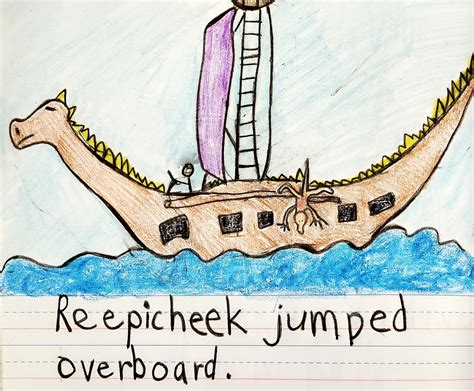 Reepicheek jumped
overboard.